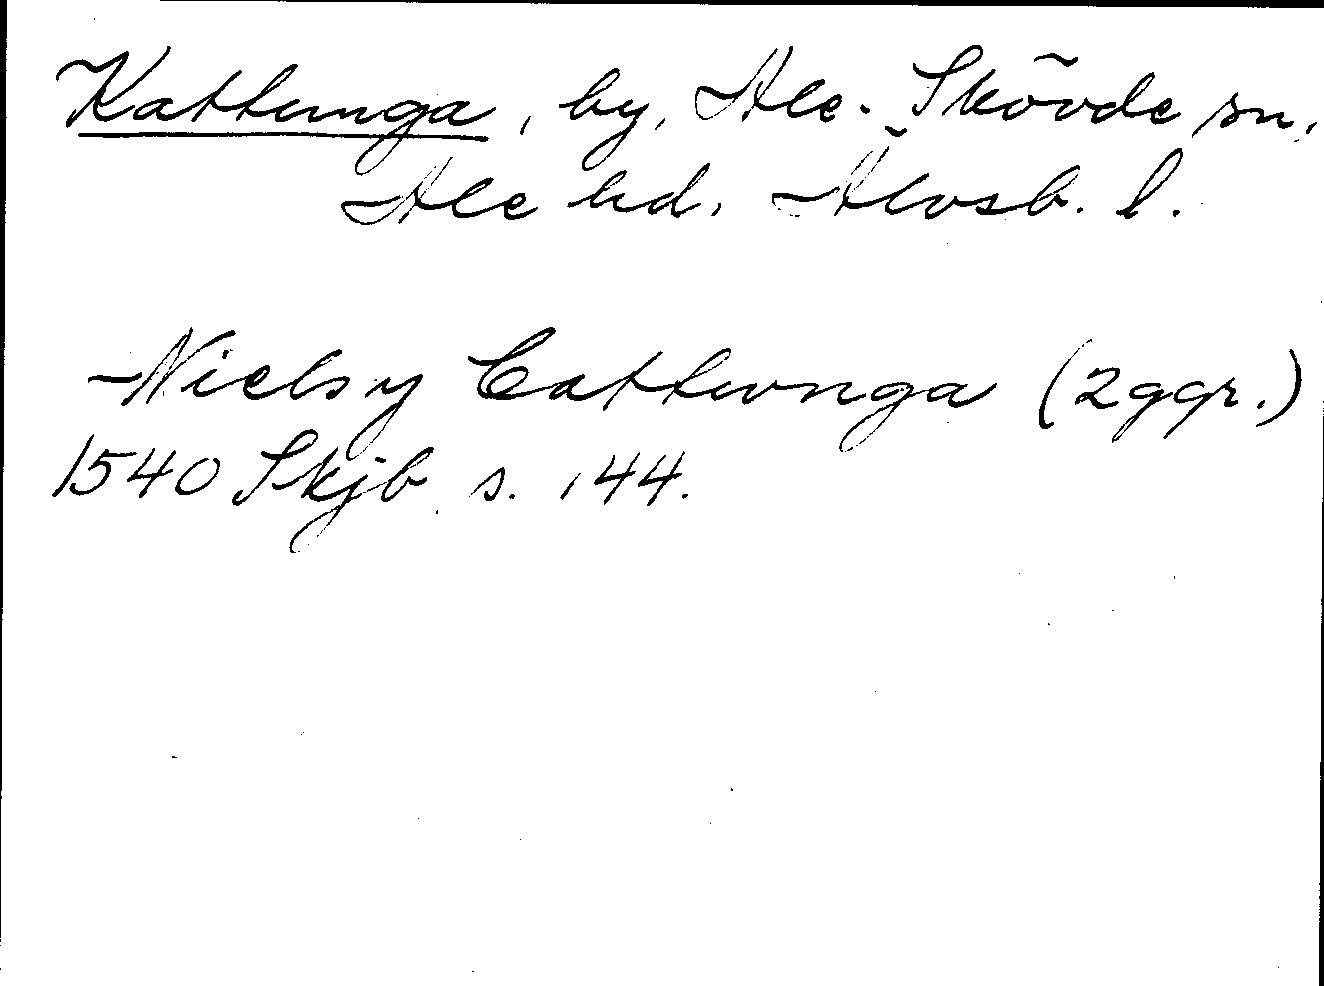 Kattunga, by, Ale-Skövde sn,
Ale hd. Älvsb. l.
Niels y Cattwnga (2 ggr.)
1540 Skjb s. 144.